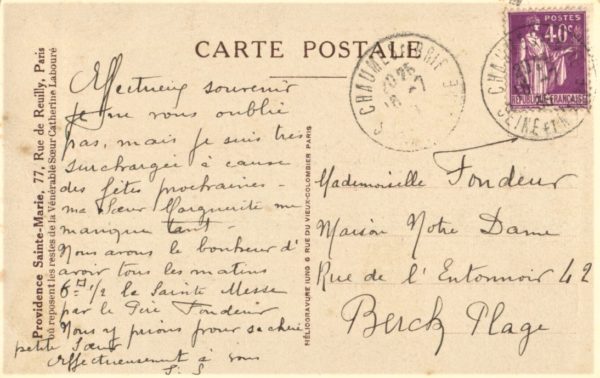 CARTE POSTALE
Providence Sainte-Marie, 77, Rue de Reuilly, Paris
où reposent les restes de la Vénérable Sœur Catherine Labouré
Affectueux souvenir
Je ne vous oublie
pas, mais je suis très
surchargée à cause
des fêtes prochaines -
ma Sœur Marguerite me
manque tant -
Nous avons le bonheur d'
avoir tous les matins
6h 1/2 la Sainte Messe
par le Père Fondeur
Nous y prions pour sa chère
petite Sœur
Affectueusement à vous
S. S
HÉLIOGRAVURE JUNG 6 RUE DU VIEUX-COLOMBIER PARIS
CHAUMES EN BRIE
CHAUMES
SEINE ET M
POSTES
40c
REPUBLIQUE FRANÇAISE
Mademoiselle Fondeur
Maison Notre Dame
Rue de l'Entonnoir 42
Berck Plage